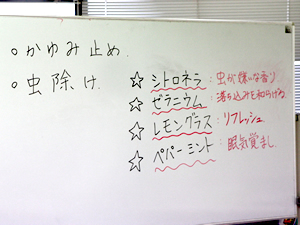 ○かゆみ止め.
○虫除け.
☆シトロネラ:虫が嫌いな香り
☆ゼラニウム:落ち込みを和らげる.
☆レモングラス:リフレッシュ.
☆ペパーミント:眠気覚まし.